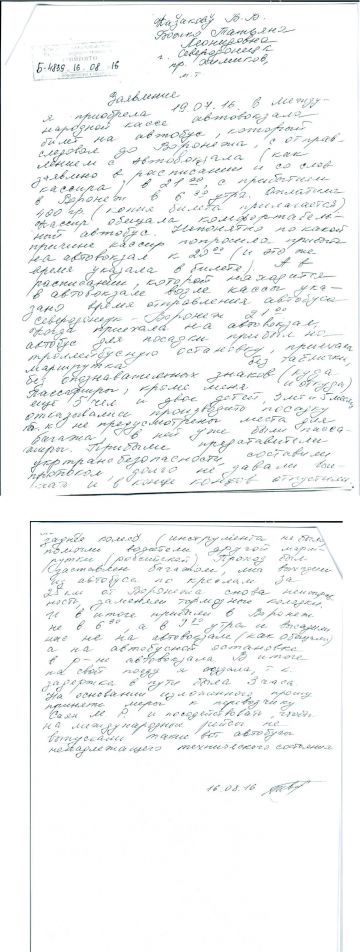 Казакову В.В.
Бойко Татьяна
Леонидовна
г. Северодонецк
пр. Химиков,
м.т.
Б-4839 16 08 16
Заявление
Я приобрела 19.07.16. в между-
народной кассе автовокзала
билет на автобус, который
следовал до Воронежа, с отправ-
лением с Автовокзала (как
заявлено в расписании и со слов
кассира) в 21 00 с прибытием
в Воронеж в 6 30 утра. Оплатила
400 гр. (копия билета прилагается)
Кассир обещала комфортабель-
ный автобус. Непонятно по какой
причине кассир попросила прийти
на автовокзал к 20 00 (и это же
время указала в билете). А в
расписании, которое находится
в автовокзале возле кассы ука-
зано время отправления автобуса
Северодонецк - Воронеж 21 00
Когда приехала на автовокзал,
автобус для посадки прибыл на
троллейбусную остановку, приехала
маршрутка без таблички,
без опознавательных знаков (куда
и откуда)
Пассажиров, кроме меня
еще чел и двое детей,
отказывались производить посадку
т.к. не предусмотрены места для
багажа, в ней уже были пасса-
жиры. Прибыли представители
укртрансбезопасности, составили
протокол, долго не давали вы-
езд и в конце концов отпустили.
заднее колесо (инструмента не было
помогли водители другой марш-
рутки (российской). Проход был
заставлен багажом, мы выходили
из автобуса по креслам. За
25 км от Воронежа снова неисправ-
ность, заменяли тормозные колодки.
И в итоге прибыли в Воронеж
не в 6 30 а в 9 20 утра и высадили
нас не на автовокзале (как обещали)
а на автобусной остановке
в р-не автовокзала. В итоге
на свой поезд я опоздала, т.к.
задержка в пути была 3 часа.
На основании изложенного прошу
принять меры к перевозчику
и посодействовать, чтобы
на международные рейсы не
выпускали такие вот автобусы
ненадлежащего технического состояния
16.08.16